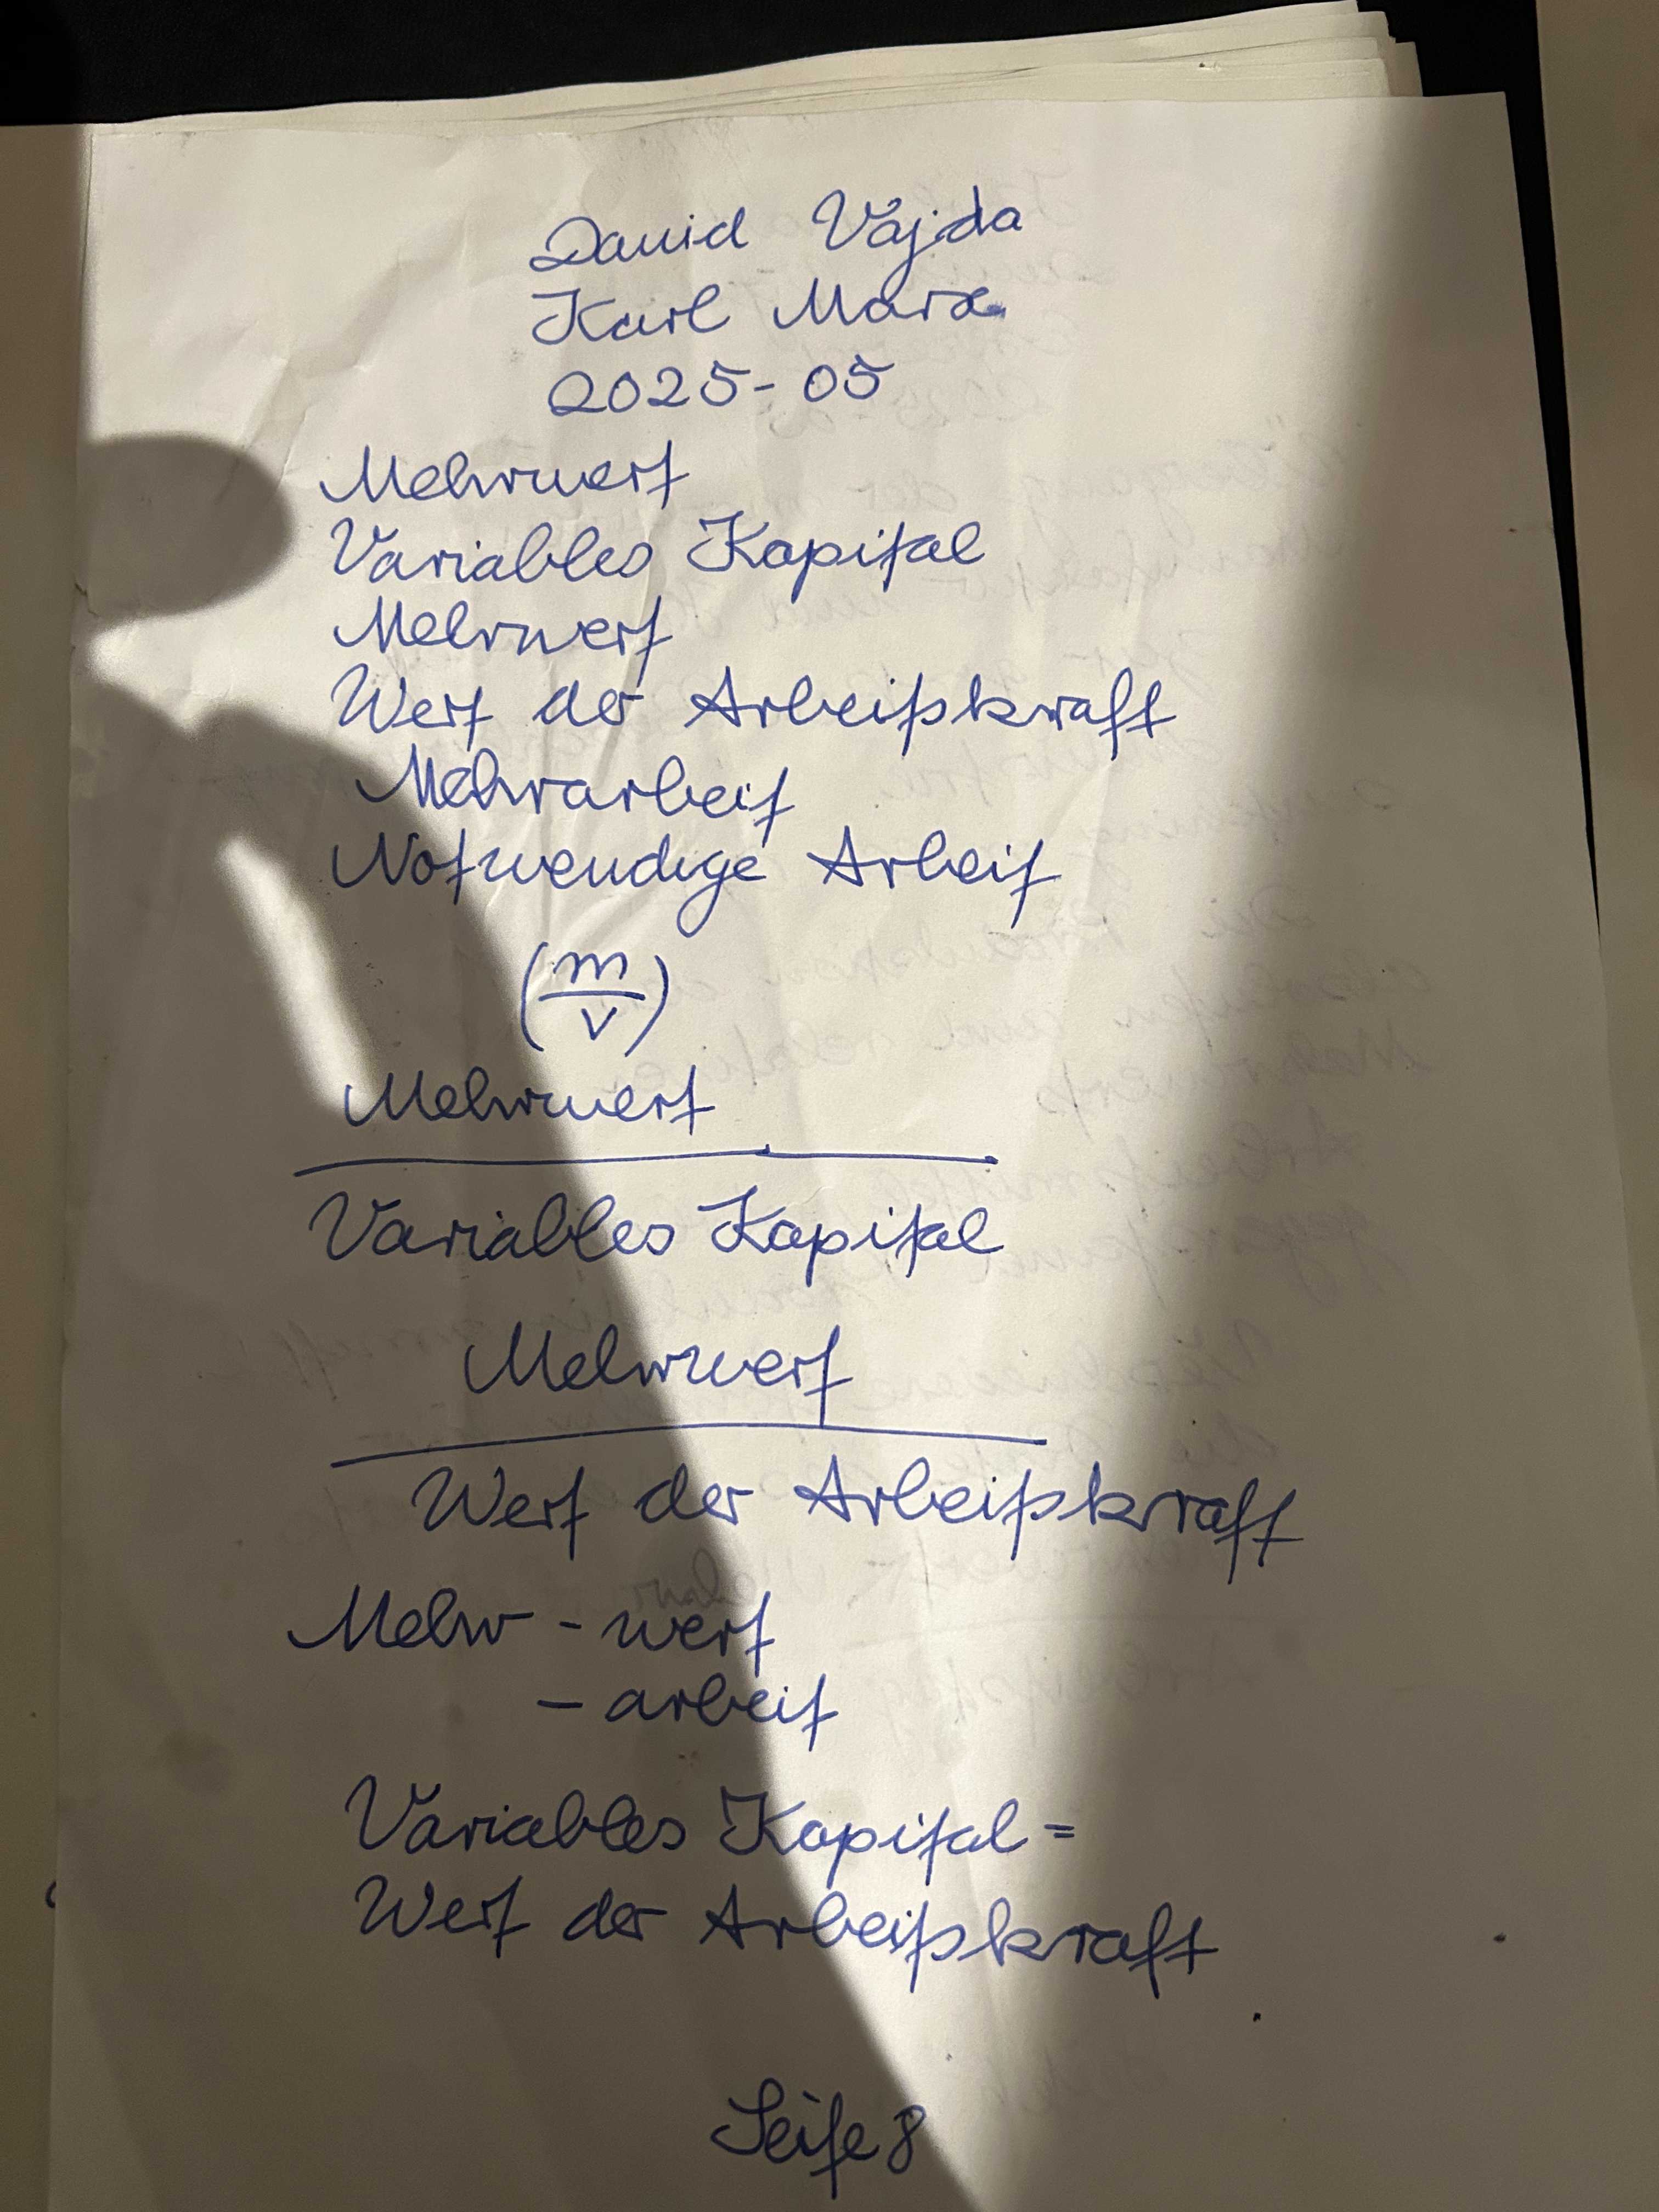 David Vajda
Karl Marx
2025-05
Mehrwert
Variables Kapital
Mehrwert
Wert der Arbeitskraft
Mehrarbeit
Notwendige Arbeit
(m/v)
Mehrwert
Variables Kapital
Mehrwert
Wert der Arbeitskraft
Mehr - wert
- arbeit
Variables Kapital =
Wert der Arbeitskraft
Seite 8